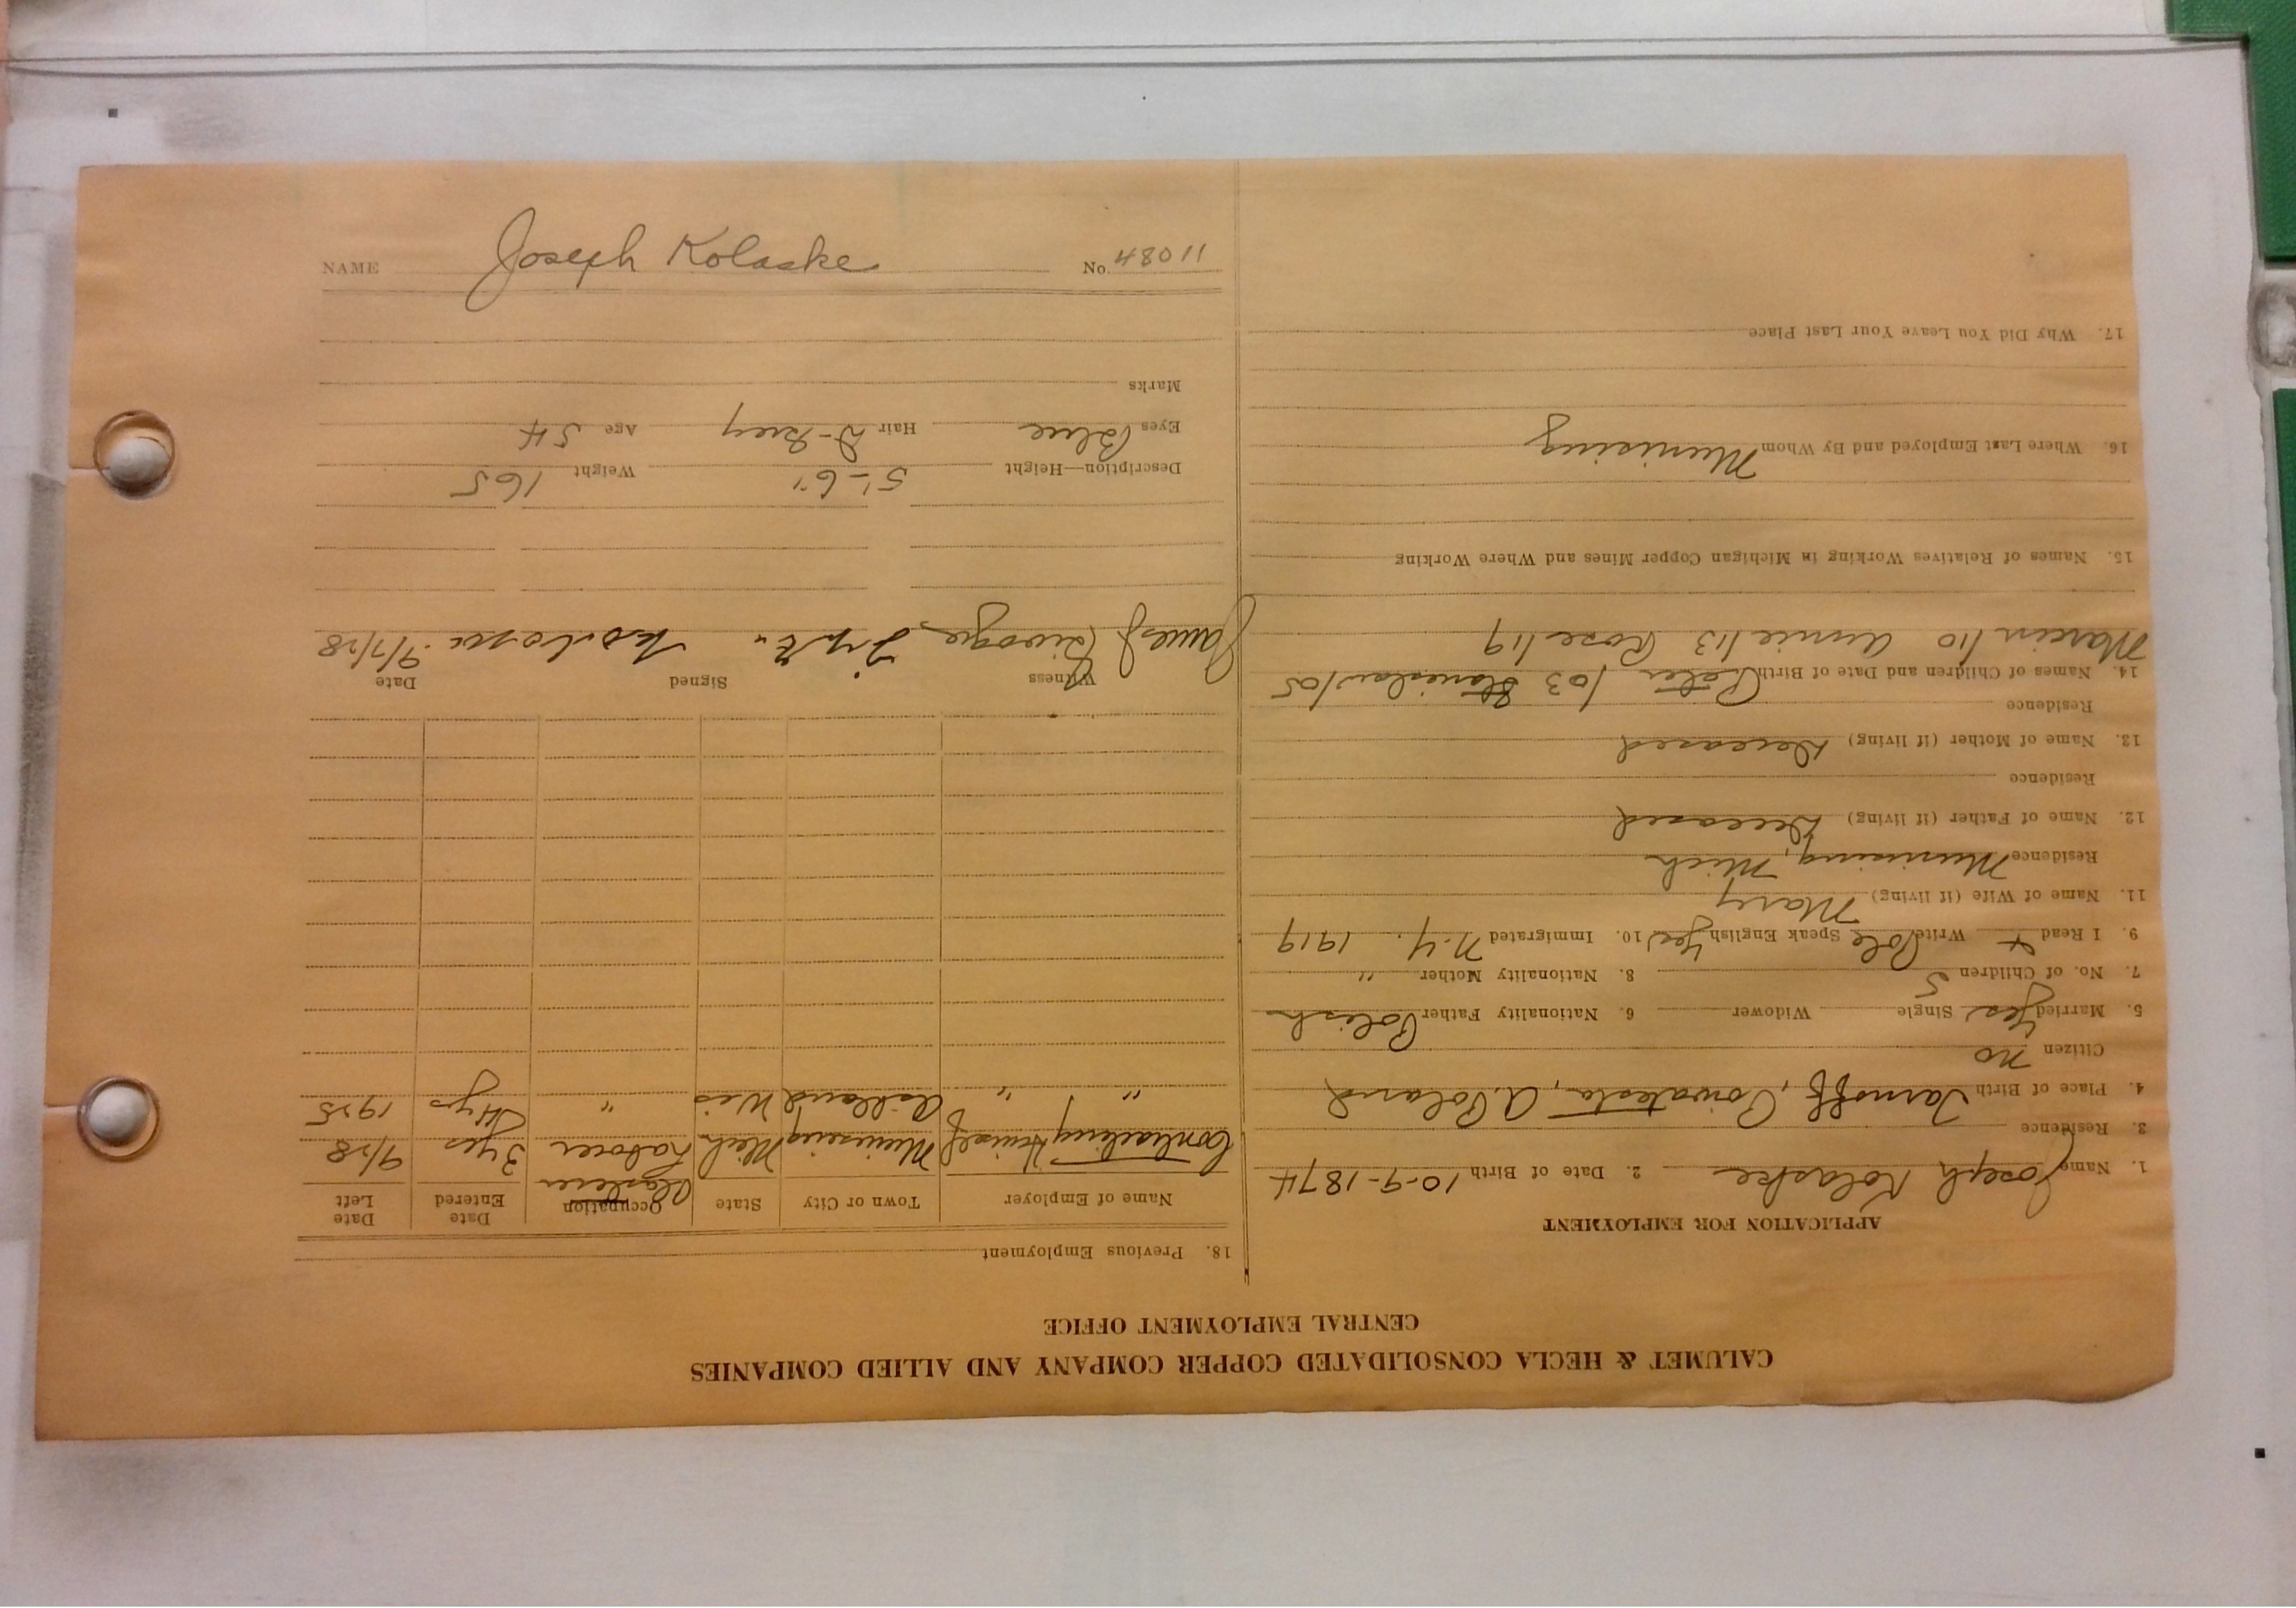 CALUMET & HECLA CONSOLIDATED COPPER COMPANY AND ALLIED COMPANIES
CENTRAL EMPLOYMENT OFFICE
APPLICATION FOR EMPLOYMENT
1. Name Joseph Kolaske 2. Date of Birth 10-9-1874
3. Residence
4. Place of Birth Tarnoff, A. Poland
Citizen no
5. Married Yes Single Widower 6. Nationality Father Polish
7. No. of Children 5 8. Nationality Mother "
9. I Read + Write Pole Speak English Yes 10. Immigrated N.Y. 1919
11. Name of Wife (if living) Mary
Residence Munising, Mich
12. Name of Father (if living) Deceased
Residence
13. Name of Mother (if living) Deceased
Residence
14. Names of Children and Date of Birth Peter /03 Stanislaw /05
Marcin /10 Annie /13 Rose /19
15. Names of Relatives Working in Michigan Copper Mines and Where Working
16. Where Last Employed and By Whom Munising
17. Why Did You Leave Your Last Place
18. Previous Employment
Name of Employer Town or City State Occupation Date Entered Date Left
Contracting Himself Munising Mich Laborer 3 yrs 9/28
" " Ashland Wis " 4 yrs 1925
Witness Signed Date
James 9/7/28
Description—Height 5'-6" Weight 165
Eyes Blue Hair D-Grey Age 54
Marks
NAME Joseph Kolaske No. 11084